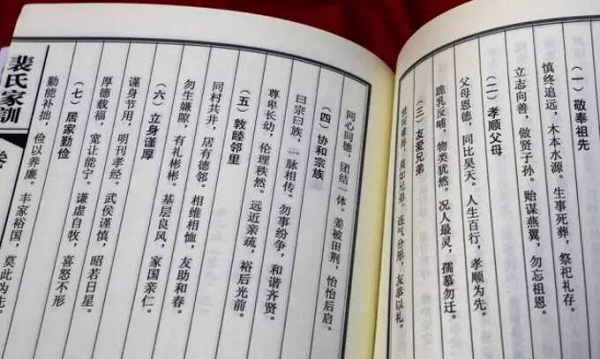 （一）敬奉祖先
慎终追远，木本水源。生事死葬，祭祀礼存。
立志向善，做贤子孙。贻谋燕翼，勿忘祖恩。
（二）孝顺父母
父母恩德，同比昊天。人生百行，孝顺为先。
跪乳反哺，物类犹然。况人最灵，孺慕勿迁。
（三）友爱兄弟
难得，莫如兄弟。连气分形，友恭以礼。
同心同德，团结一体。姜被田荆，怡怡后启。
（四）协和宗族
曰宗曰族，一脉相传。勿事纷争，和谐齐贤。
尊卑长幼，伦理秩然。远近亲疏，裕后光前。
（五）敦睦邻里
同村共井，居有德邻。相维相恤，友助和春。
勿生嫌隙，有礼彬彬。基层良风，家国亲仁。
（六）立身谨厚
谨身节用，明刊孝经。武侯谨慎，昭若日星。
厚德载福，宽让能宁。谦虚自牧，喜怒不形
（七）居家勤俭
勤能补拙，俭以养廉。丰家裕国，莫此为先。
裴氏家訓